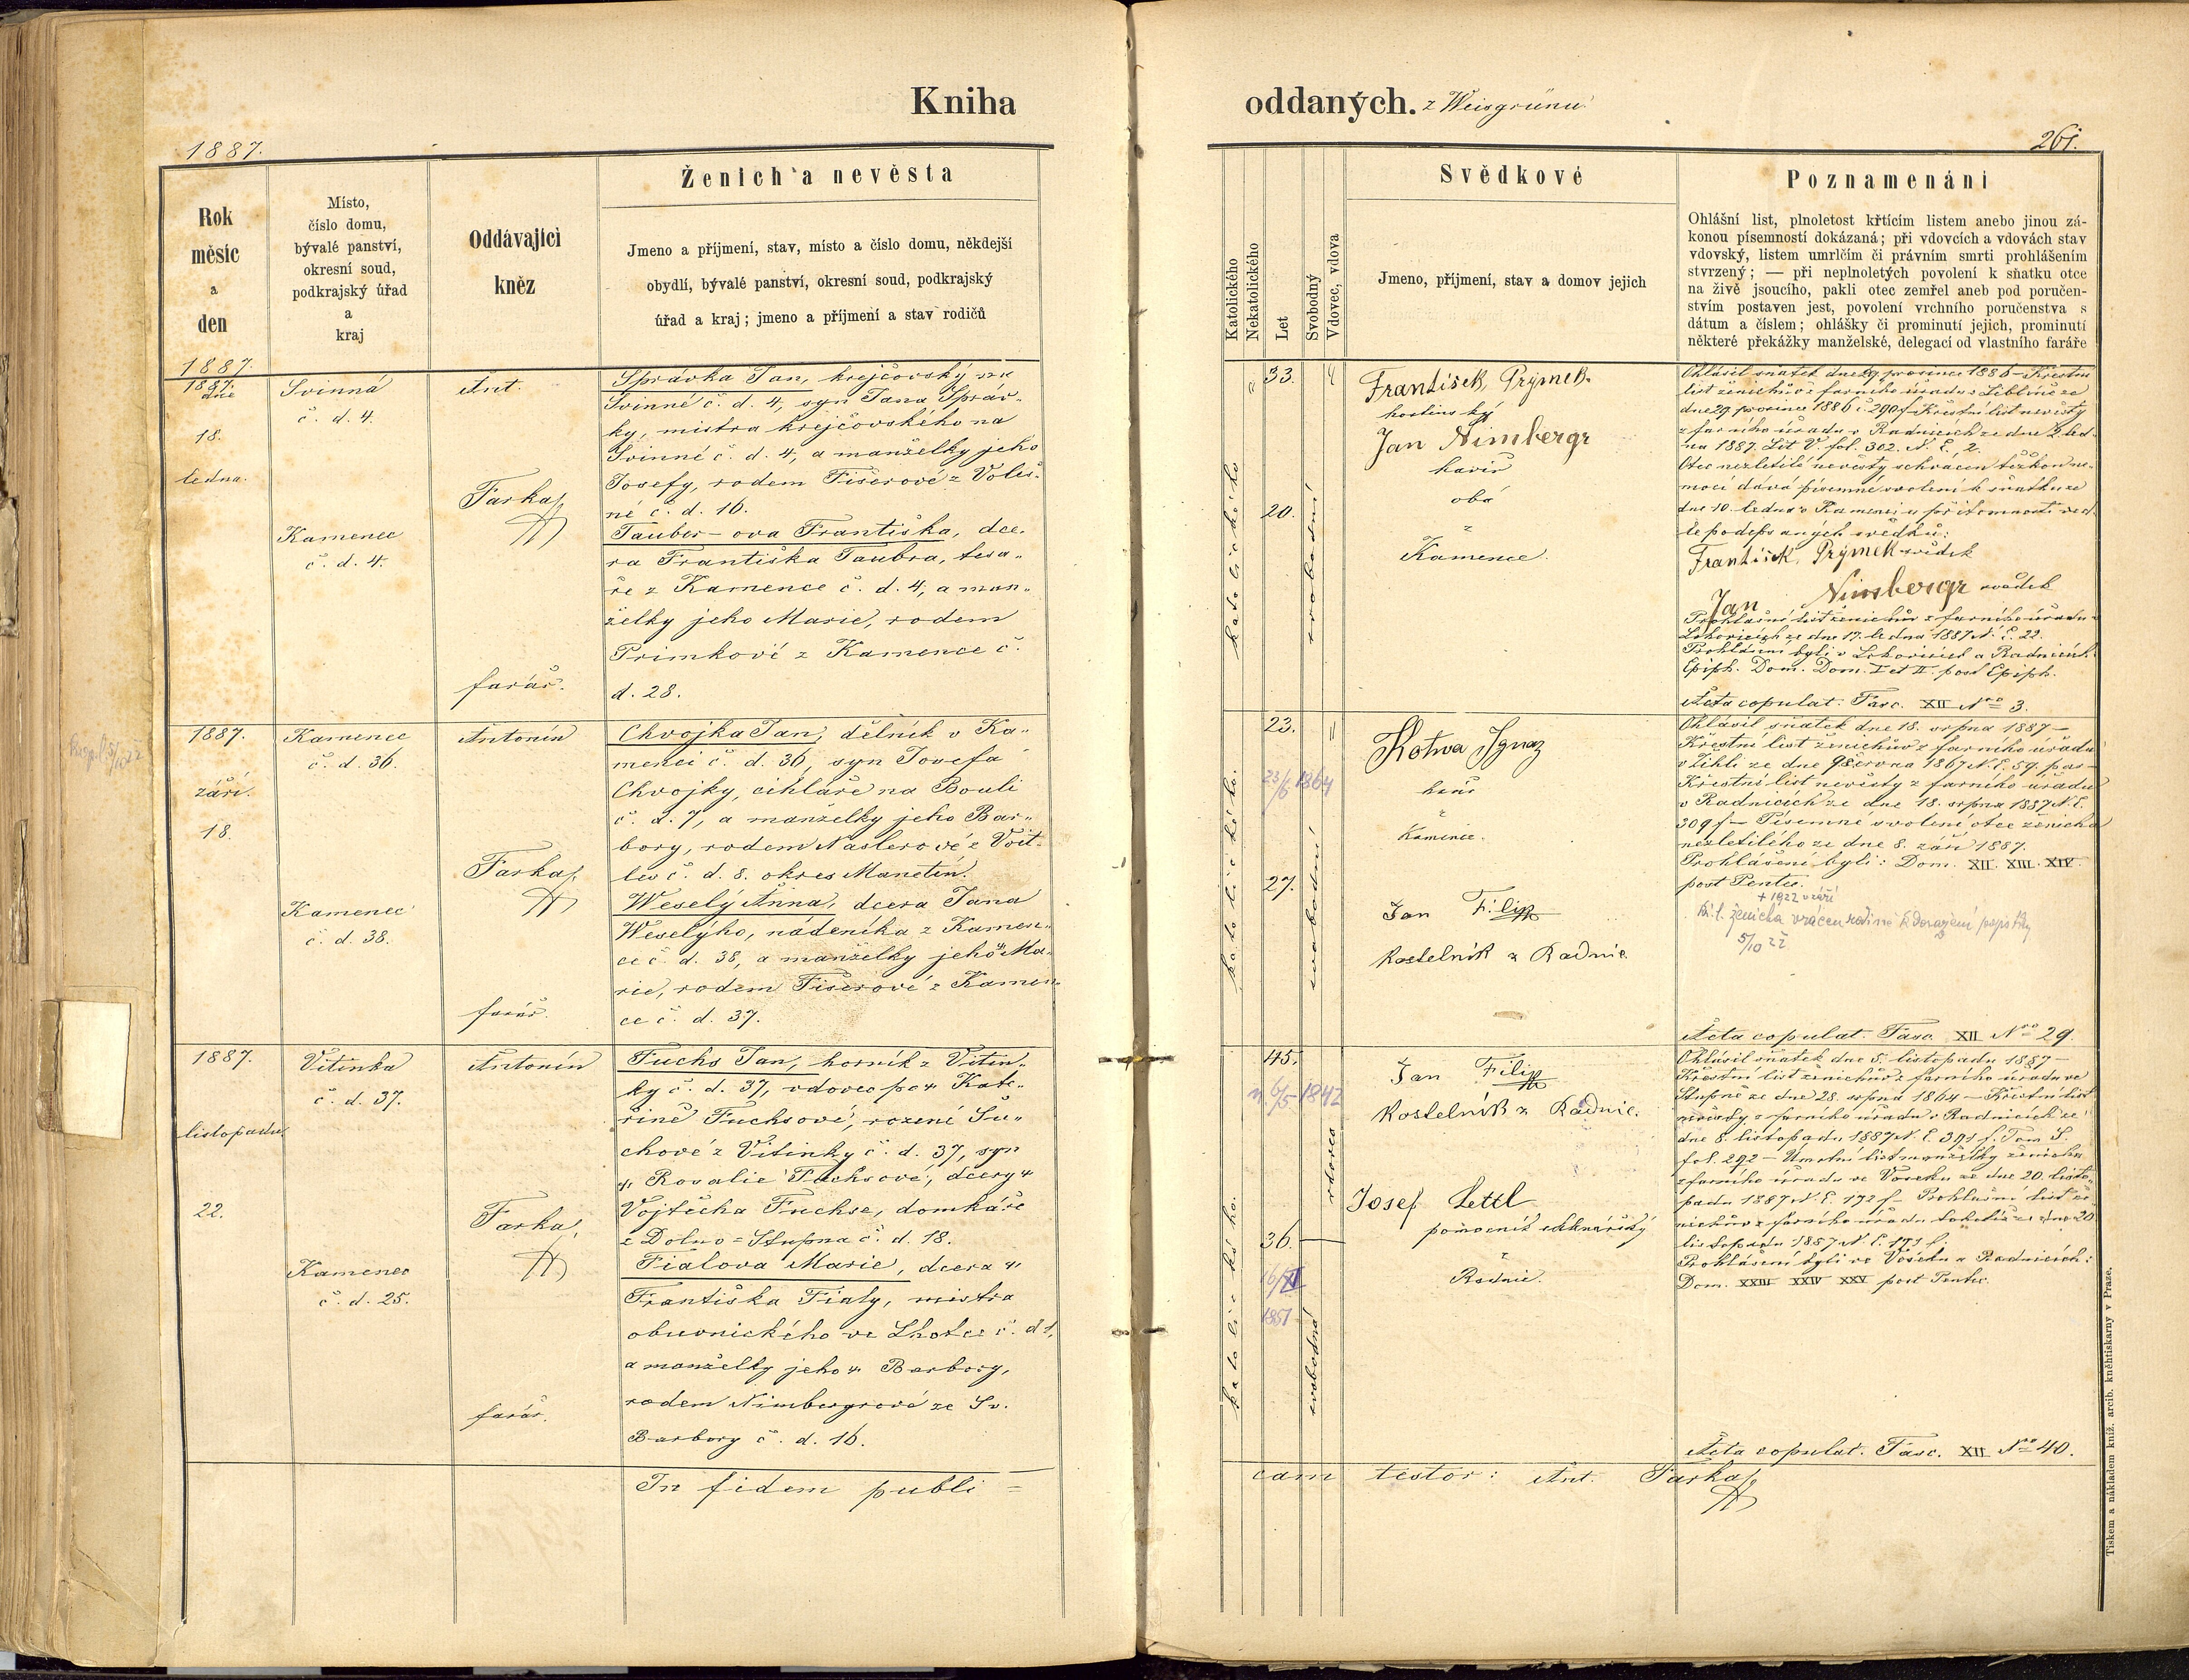 Kniha
1887.
Ženich a nevěsta
Rok
měsíc
a
den
Místo,
číslo domu,
bývalé panství,
okresní soud,
podkrajský úřad
a
kraj
Oddávající
kněz
Jmeno a příjmení, stav, místo a číslo domu, někdejší
obydlí, bývalé panství, okresní soud, podkrajský
úřad a kraj; jmeno a příjmení a stav rodičů
1887.
1887.
dne
18.
ledna.
Svinná
č. d. 4.
Kamenec
č. d. 4.
Ant.
Farka
farář.
Správka Jan, krejčovský na
Svinné č. d. 4, syn Jana Správ„
ky, mistra krejčovského na
Svinné č. d. 4, a manželky jeho
Josefy, rodem Fišerové z Voleš„
né č. d. 16.
Tauber-ova Františka, dce„
ra Františka Taubra, tesa„
ře z Kamence č. d. 4, a man„
želky jeho Marie, rodem
Primkové z Kamence č.
d. 28.
1887.
září.
18.
Kamenec
č. d. 36.
Kamenec
č. d. 38.
Antonín
Farka
farář.
Chvojka Jan, dělník v Ka„
menci č. d. 36, syn Josefa
Chvojky, cihláře na Bouli
č. d. 7, a manželky jeho Bar„
bory, rodem Naslerové z Voit„
lev č. d. 8. okres Manetín.
Weselý Anna, dcera Jana
Weselýho, nádeníka z Kamen„
ce č. d. 38, a manželky jeho Ma„
rie, rodem Fišerové z Kamen„
ce č. d. 37.
1887.
listopadu.
22.
Vitinka
č. d. 37.
Kamenec
č. d. 25.
Antonín
Farka
farář.
Fuchs Jan, horník z Vitin„
ky č. d. 37, vdovec po Kate„
řině Fuchsové, rozené Su„
chové z Vitinky č. d. 37, syn
Rosalie Fuchsové, dcery
Vojtěcha Fuchse, domkáře
z Dolno=Stupna č. d. 18.
Fialova Marie, dcera
Františka Fialy, mistra
obuvnického ve Lhotce č. d. 1,
a manželky jeho Barbory,
rodem Nimbergrové ze Sv.
Barbory č. d. 16.
In fidem publi =
oddaných. z Weisgrünu
261.
Katolického
Nekatolického
Let
Svobodný
Vdovec, vdova
Svědkové
Jmeno, příjmení, stav a domov jejich
Poznamenání
Ohlášní list, plnoletost křtícím listem anebo jinou zá-
konou písemností dokázaná; při vdovcích a vdovách stav
vdovský, listem umrlčím či právním smrti prohlášením
stvrzený; — při neplnoletých povolení k sňatku otce
na živě jsoucího, pakli otec zemřel aneb pod poručen-
stvím postaven jest, povolení vrchního poručenstva s
dátum a číslem; ohlášky či prominutí jejich, prominutí
některé překážky manželské, delegací od vlastního faráře
katolického
33.
20.
svobodní
František Prýmek
hostinský
Jan Nimbergr
havíř
oba
z
Kamence.
Ohlásil sňatek dne 29. prosince 1886 – Křestní
list ženichův z farního úřadu v Liblíně ze
dne 29. prosince 1886 č. 290 f – Křestní list nevěsty
z farního úřadu v Radnicích ze dne 2. led„
na 1887. Lit V. fol. 302. N. E. 2.
Otec nezletilé nevěsty schvácen těžkou ne„
mocí dává písemné svolení k sňatku ze
dne 10. ledna v Kamenci u přítomnosti ved„
le podepsaných svědků:
František Prýmek svědek
Jan Nimbergr svědek
Prohlášní list ženichův z farního úřadu v
ze dne 17. ledna 1887 N. E. 22.
Prohlášeni byli v a Radnicích:
Epiph. Dom. Dom. I et II. post Epiph.
Acta copulat. Fasc. XII No 3.
katolického.
23.
23/6 1864
27.
svobodní
Kotva Ignaz
z
Kamence.
Jan Filip
kostelník z Radnic
Ohlásil sňatek dne 18. srpna 1887 –
Křestní list ženichův z farního úřadu
v Žihli ze dne 9 června 1867 N. E. 59. pas –
Křestní list nevěsty z farního úřadu
v Radnicích ze dne 18. srpna 1887 N. E.
309 f – Písemné svolení otce ženicha
nezletilého ze dne 8. září 1887.
Prohlášeni byli: Dom. XII. XIII. XIV.
post Pentec.
+ 1922 v září
5/10 22
Acta copulat. Fasc. XII No 29.
katolického.
45.
6/5 1842
36.
16/XI
1851
vdovec
svobodná
Jan Filip
kostelník z Radnic.
Josef Lettl
pomocník
z
Radnic.
Ohlásil sňatek dne 5. listopadu 1887 –
Křestní list ženichův z farního úřadu ve
Stupně ze dne 28. srpna 1864 – Křestní list
nevěsty z farního úřadu v Radnicích ze
dne 8. listopadu 1887 N. E. 391 f. Tom S.
fol. 292 – Úmrtní list manželky ženicha
z farního úřadu ve Voseku ze dne 20. listo„
padu 1887 N. E. 172 f – Prohlášní list že„
nichův z farního úřadu ze dne 20
listopadu 1887 N. E. 173 f.
Prohlášeni byli ve Voseku a Radnicích:
Dom. XXIII XXIV XXV post Pentec.
Acta copulat. Fasc. XII No 40.
cam testor: Ant. Farka
Tiskem a nákladem kníž. arcib. kněhtiskárny v Praze.